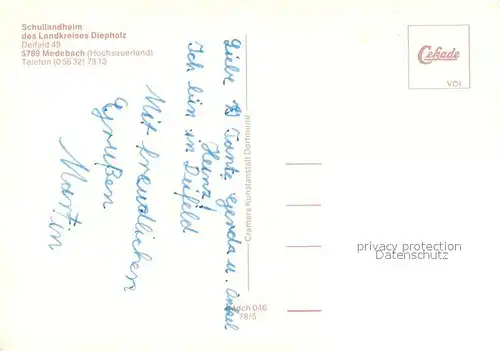 Schullandheim
des Landkreises Diepholz
Deifeld 49
5789 Medebach (Hochsauerland)
Telefon (0 56 32) 79 13
Liebe Tante Gerda u. Onkel
Heinz!
Ich bin in Deifeld
Mit freundlichen
Grüßen
Martin
Cramers Kunstanstalt Dortmund
Mdch 046
78/5
Cekade
VDI
privacy protection
Datenschutz